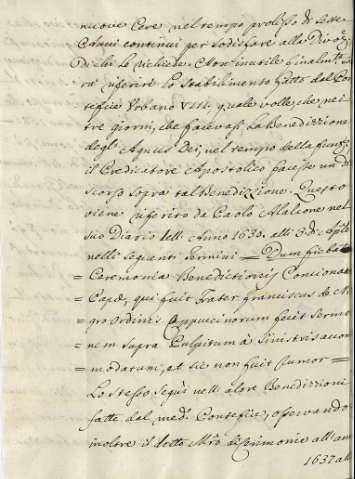 nuove Cere nel tempo prolisso di sette
Anni continui per sodisfare alla
di chi le richiede. Non inutile finalmte sa
rà riferire lo stabilimento fatto dal Pon
tefice Urbano VIII. quale volle, che nei
tre giorni, che facevasi la Benedizzione
degl' Agnus Dei, nel tempo della funze
il Predicatore Apostolico facesse un di
scorso sopra tal Benedizzione. Questo
viene riferito da Paolo Alaleone nel
suo Diario dell' Anno 1630. alli 3. di Aple
nelli seguenti termini = Dum fiebat
= Ceremonia Benedictionis Concionator
= Capæ, qui fuit Frater Franciscus de
= gro Ordinis Cappuccinorum fecit Sermo
= nem supra Pulpitum à sinistris accom
= modatum, et sic non fuit rumor =
Lo stesso seguì nell' altre Benedizzioni
fatte dal medo Pontefice, osservando
inoltre il detto Mro di Cerimonie all' an
1637 al